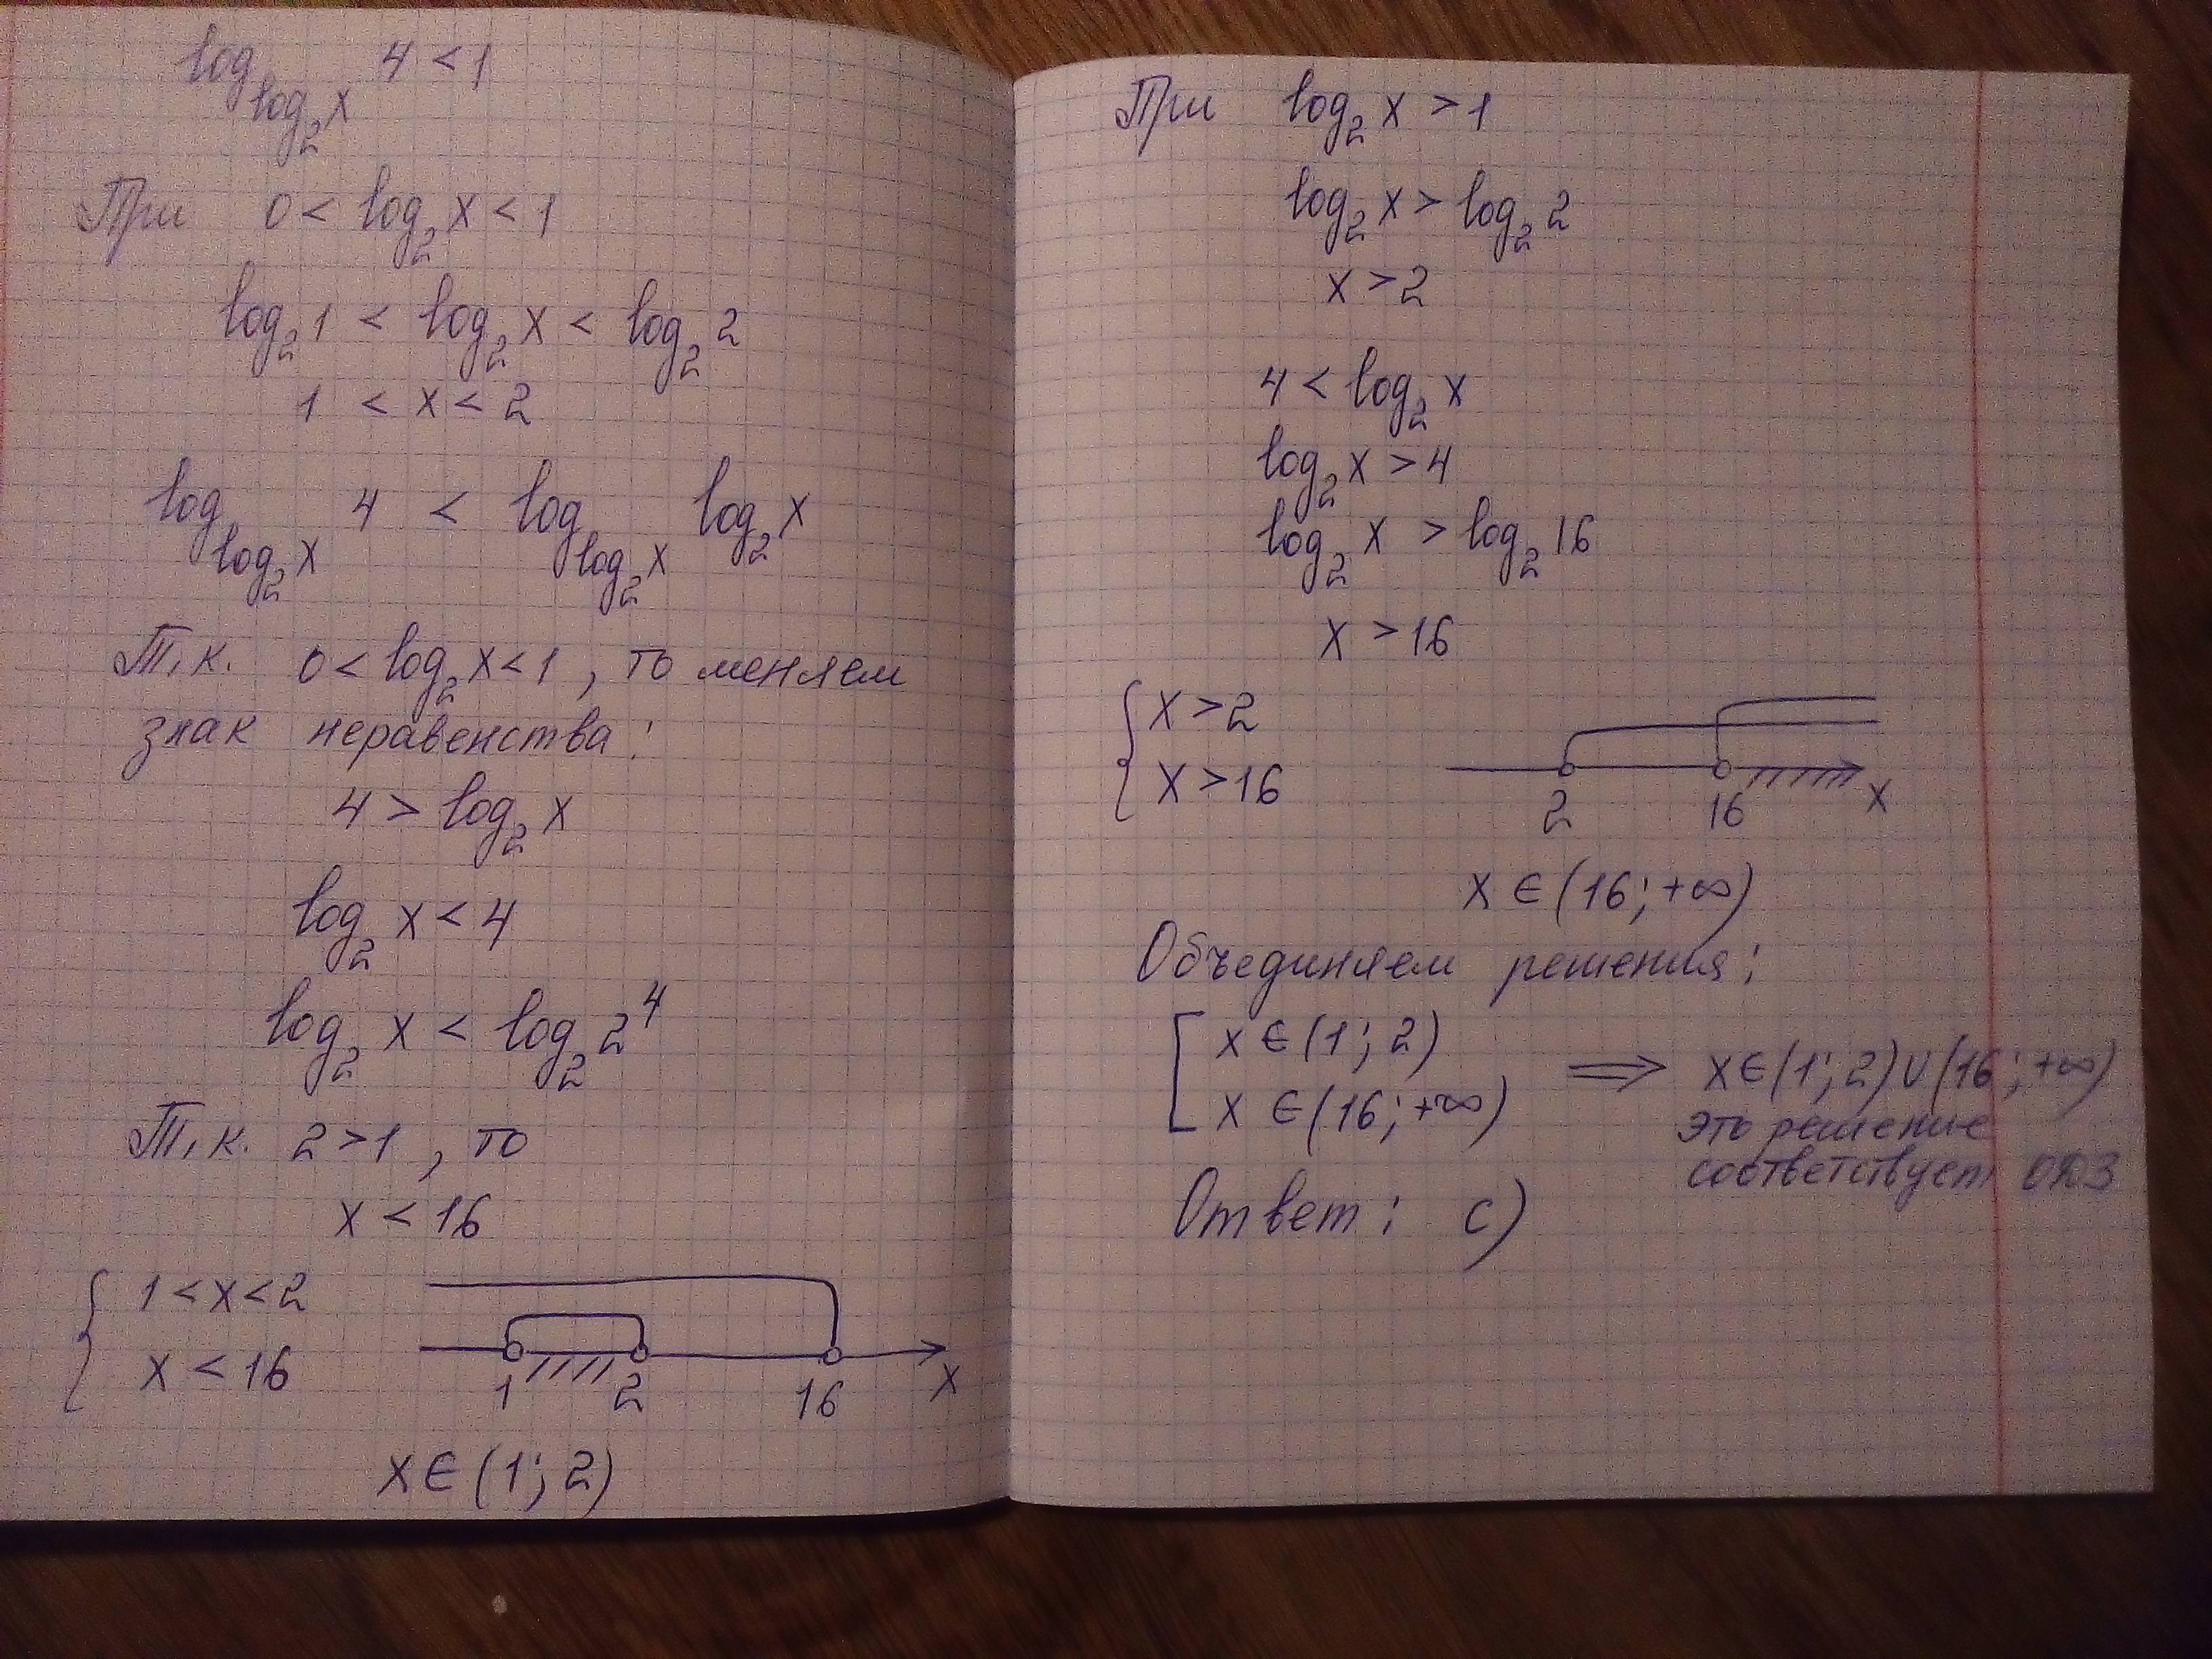 log_{log_2 x} 4 < 1
При 0 < log_2 x < 1
log_2 1 < log_2 x < log_2 2
1 < x < 2
log_{log_2 x} 4 < log_{log_2 x} log_2 x
Т.к. 0 < log_2 x < 1, то меняем
знак неравенства:
4 > log_2 x
log_2 x < 4
log_2 x < log_2 2^4
Т.к. 2 > 1, то
x < 16
{ 1 < x < 2
x < 16
1 2 16 x
x ∈ (1; 2)
При log_2 x > 1
log_2 x > log_2 2
x > 2
4 < log_2 x
log_2 x > 4
log_2 x > log_2 16
x > 16
{ x > 2
x > 16
2 16 x
x ∈ (16; +∞)
Объединяем решения:
[ x ∈ (1; 2)
x ∈ (16; +∞)
⟹ x ∈ (1; 2) ∪ (16; +∞)
это решение
соответствует ОДЗ
Ответ: c)